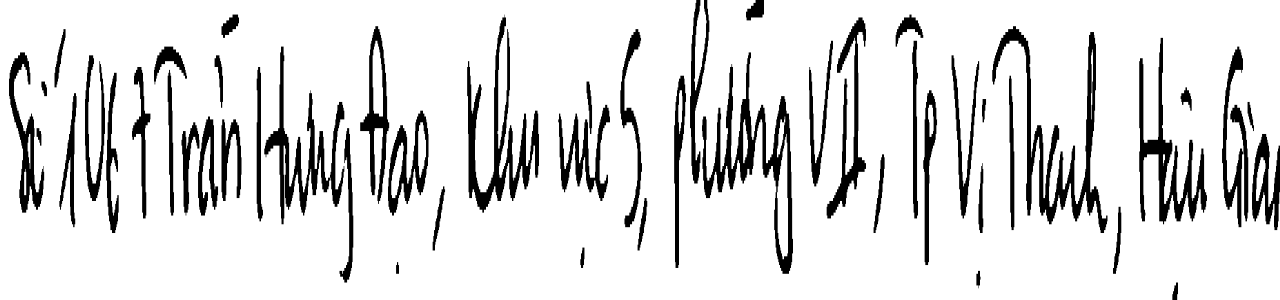 Số 10E + Trần Hưng Đạo, Khu vực 5, phường VII, Tp Vị Thanh, Hậu Giang